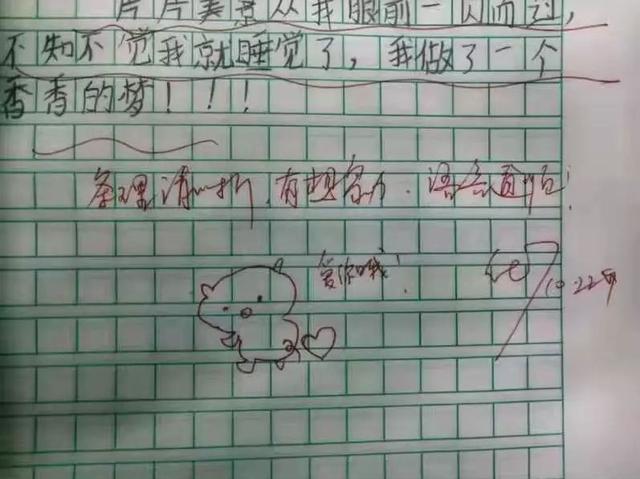 片片美景从我眼前一闪而过,
不知不觉我就睡觉了，我做了一个
香香的梦！！！
条理清晰,有想象力.语言通顺!
爱你哦!
10.22阅